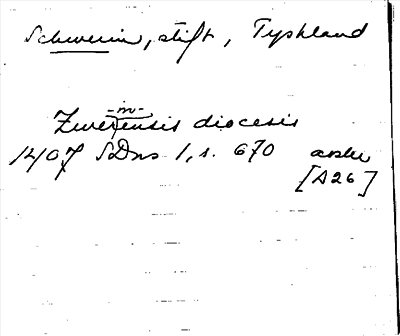 Schwerin, stift, Tyskland
-in-
Zwerensis diocesis
1407 SDns 1, s. 670 avskr
[A26]